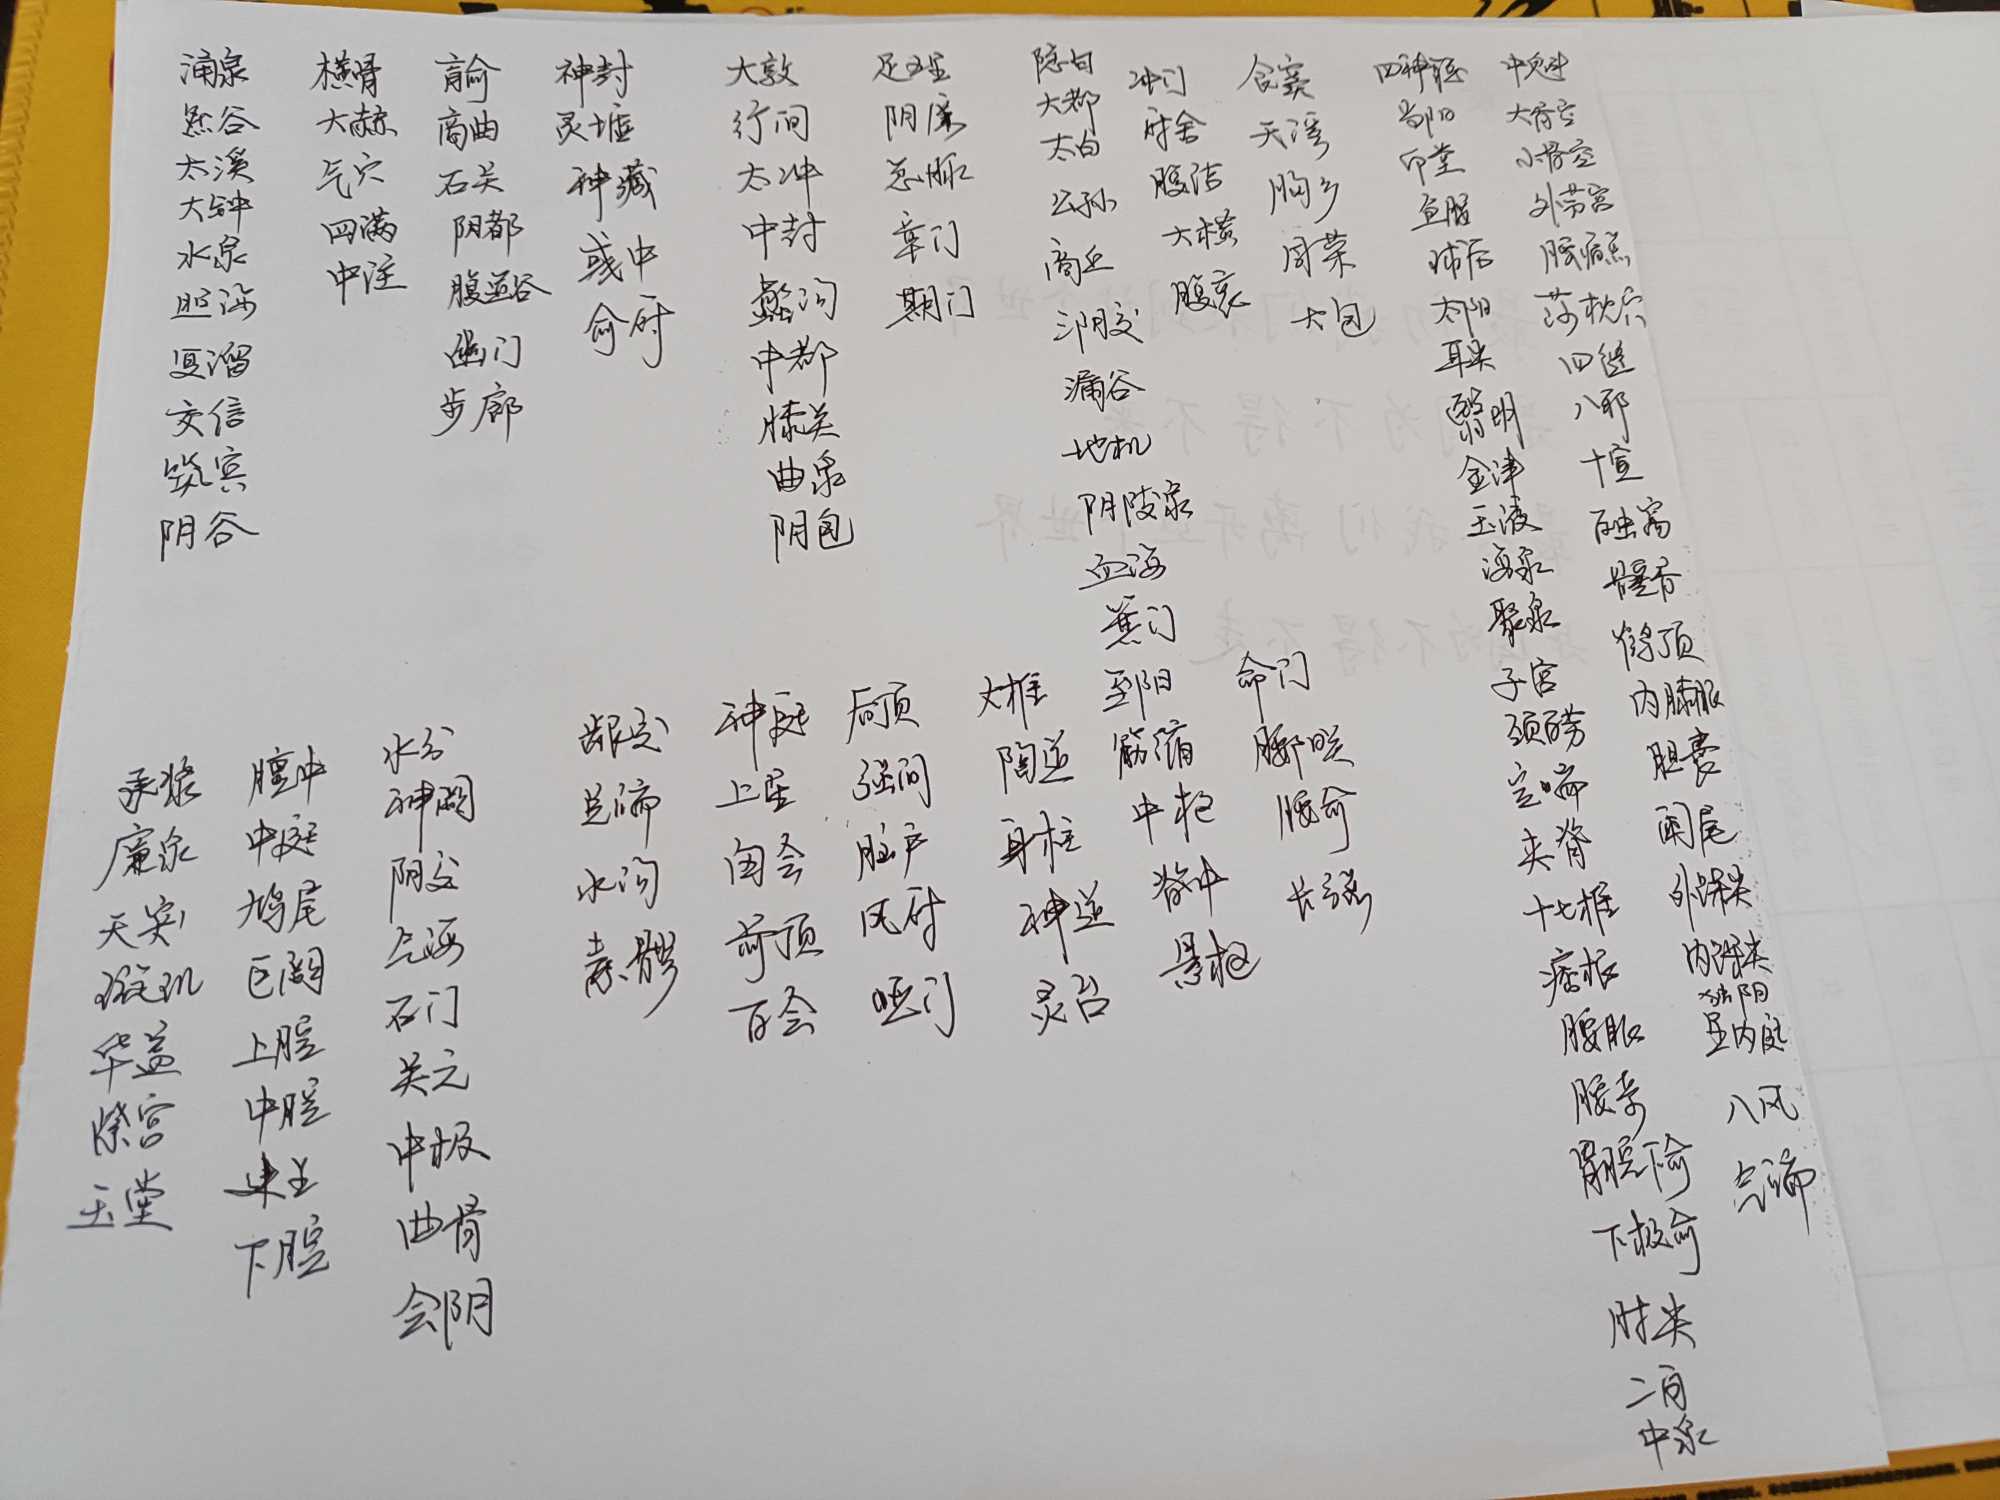 涌泉
然谷
太溪
大钟
水泉
照海
复溜
交信
筑宾
阴谷
横骨
大赫
气穴
四满
中注
肓俞
商曲
石关
阴都
腹通谷
幽门
步廊
神封
灵墟
神藏
彧中
俞府
大敦
行间
太冲
中封
蠡沟
中都
膝关
曲泉
阴包
足五里
阴廉
急脉
章门
期门
隐白
大都
太白
公孙
商丘
三阴交
漏谷
地机
阴陵泉
血海
箕门
冲门
府舍
腹结
大横
腹哀
食窦
天溪
胸乡
周荣
大包
四神聪
当阳
印堂
鱼腰
球后
太阳
耳尖
翳明
金津
玉液
海泉
聚泉
子宫
颈百劳
定喘
夹脊
十七椎
痞根
腰眼
腰奇
胃脘下俞
下极俞
肘尖
二白
中泉
中魁
大骨空
小骨空
外劳宫
腰痛点
落枕穴
四缝
八邪
十宣
百虫窝
髋骨
鹤顶
内膝眼
胆囊
阑尾
外踝尖
内踝尖
独阴
里内庭
八风
气端
承浆
廉泉
天突
璇玑
华盖
紫宫
玉堂
膻中
中庭
鸠尾
巨阙
上脘
中脘
建里
下脘
水分
神阙
阴交
气海
石门
关元
中极
曲骨
会阴
龈交
兑端
水沟
素髎
神庭
上星
囟会
前顶
百会
后顶
强间
脑户
风府
哑门
大椎
陶道
身柱
神道
灵台
至阳
筋缩
中枢
脊中
悬枢
命门
腰阳关
腰俞
长强